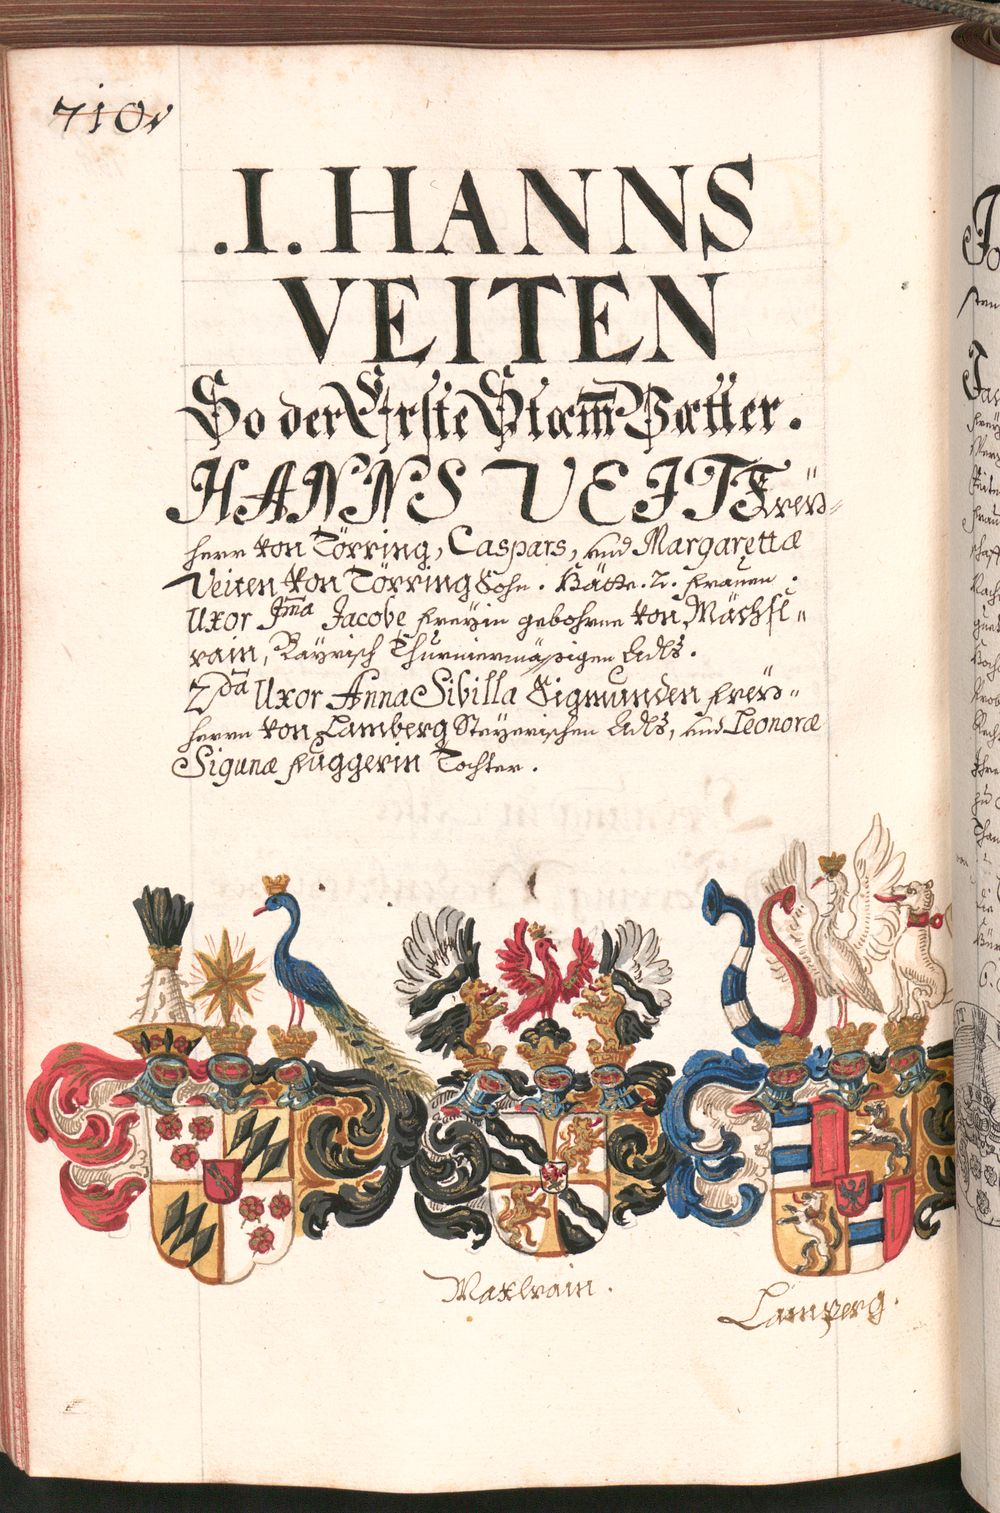 710v
.I. HANNS
VEITEN
So der Erste Stam̅ Vætter.
HANNS VEIT Freÿ=
herr von Törring, Caspars, und Margarettæ
Veiten von Törring Sohn. Hätte. 2. Frauen.
Uxor I^ma Jacobe Freÿin gebohrne von Mächsl=
rain, Bayrisch Thurniermäßigen Adls.
2^da Uxor Anna Sibilla Sigmunden Freÿ=
herrn von Lamberg Steyerischen Adls, und Leonoræ
Sigunæ Fuggerin Tochter.
Maxlrain.
Lamperg.